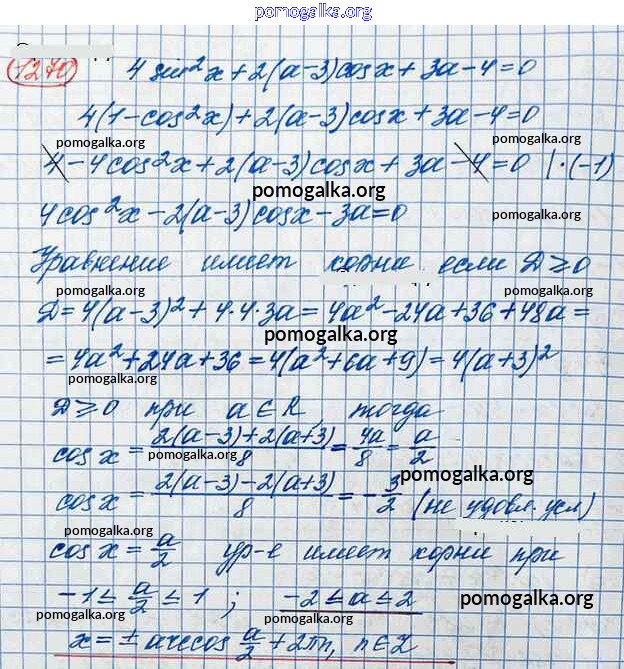 pomogalka.org
1270 4 sin²x + 2(a-3)cosx + 3a-4=0
4(1-cos²x)+2(a-3)cosx+3a-4=0
pomogalka.org
4-4cos²x+2(a-3)cosx+3a-4=0 |·(-1)
pomogalka.org
4cos²x-2(a-3)cosx-3a=0
pomogalka.org
Уравнение имеет корни если D≥0
D=4(a-3)²+4·4·3a=4a²-24a+36+48a=
pomogalka.org
=4a²+24a+36=4(a²+6a+9)=4(a+3)²
pomogalka.org
D≥0 при a∈R, тогда
cos x = (2(a-3)+2(a+3))/8 = 4a/8 = a/2
pomogalka.org
pomogalka.org
cos x = (2(a-3)-2(a+3))/8 = -3/2 (не удовл. усл)
pomogalka.org
cos x = a/2 ур-е имеет корни при
-1≤ a/2 ≤1 ; -2≤a≤2
pomogalka.org
pomogalka.org
x = ± arccos a/2 + 2πn, n∈Z